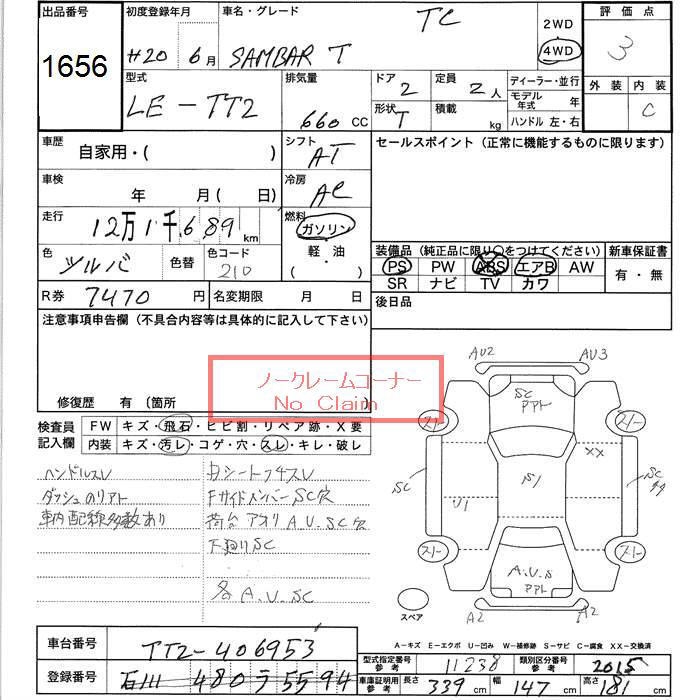 出品番号 1656
初度登録年月 H20 6月
車名・グレード SAMBAR T TC
2WD
4WD
評価点 3
外装 内装 C
型式 LE-TT2
排気量 660 CC
ドア 2
定員 2人
形状 T
積載 kg
ディーラー・並行
モデル年式 年
ハンドル 左・右
車歴 自家用・( )
シフト AT
セールスポイント（正常に機能するものに限ります）
車検 年 月(日)
冷房 AC
走行 12万1千689 km
燃料 ガソリン
軽・油
・( )
色 シルバ 色替
色コード 210
装備品（純正品に限り○をつけてください）
新車保証書
PS PW ABS エアB AW
SR ナビ TV カワ
有・無
R券 7470円
名変期限 月 日
後日品
注意事項申告欄（不具合内容等は具体的に記入して下さい）
ノークレームコーナー
No Claim
修復歴 有（箇所
検査員記入欄
FW キズ・飛石・ヒビ割・リペア跡・X要
内装 キズ・汚レ・コゲ・穴・スレ・キレ・破レ
ハンドルスレ
ダッシュのリアト
車内配線多数あり
FサイドメンバーSC穴
荷台アオリA.U.SC穴
下廻りSC
各A.U.SC
AU2 AU3
SC
アアト
スレ スレ
XX
SC S1 SC
U1
スレ スレ
A.U.S
アアト
A2 A2
スペア
A-キズ E-エクボ U-凹み W-補修跡 S-サビ C-腐食 XX-交換済
車台番号 TT2-406953
登録番号 石川 480 ラ 5594
型式指定番号参考 11238
類別区分番号参考 2015
車庫証明用参考 長さ 339cm 幅 147cm 高さ 181cm